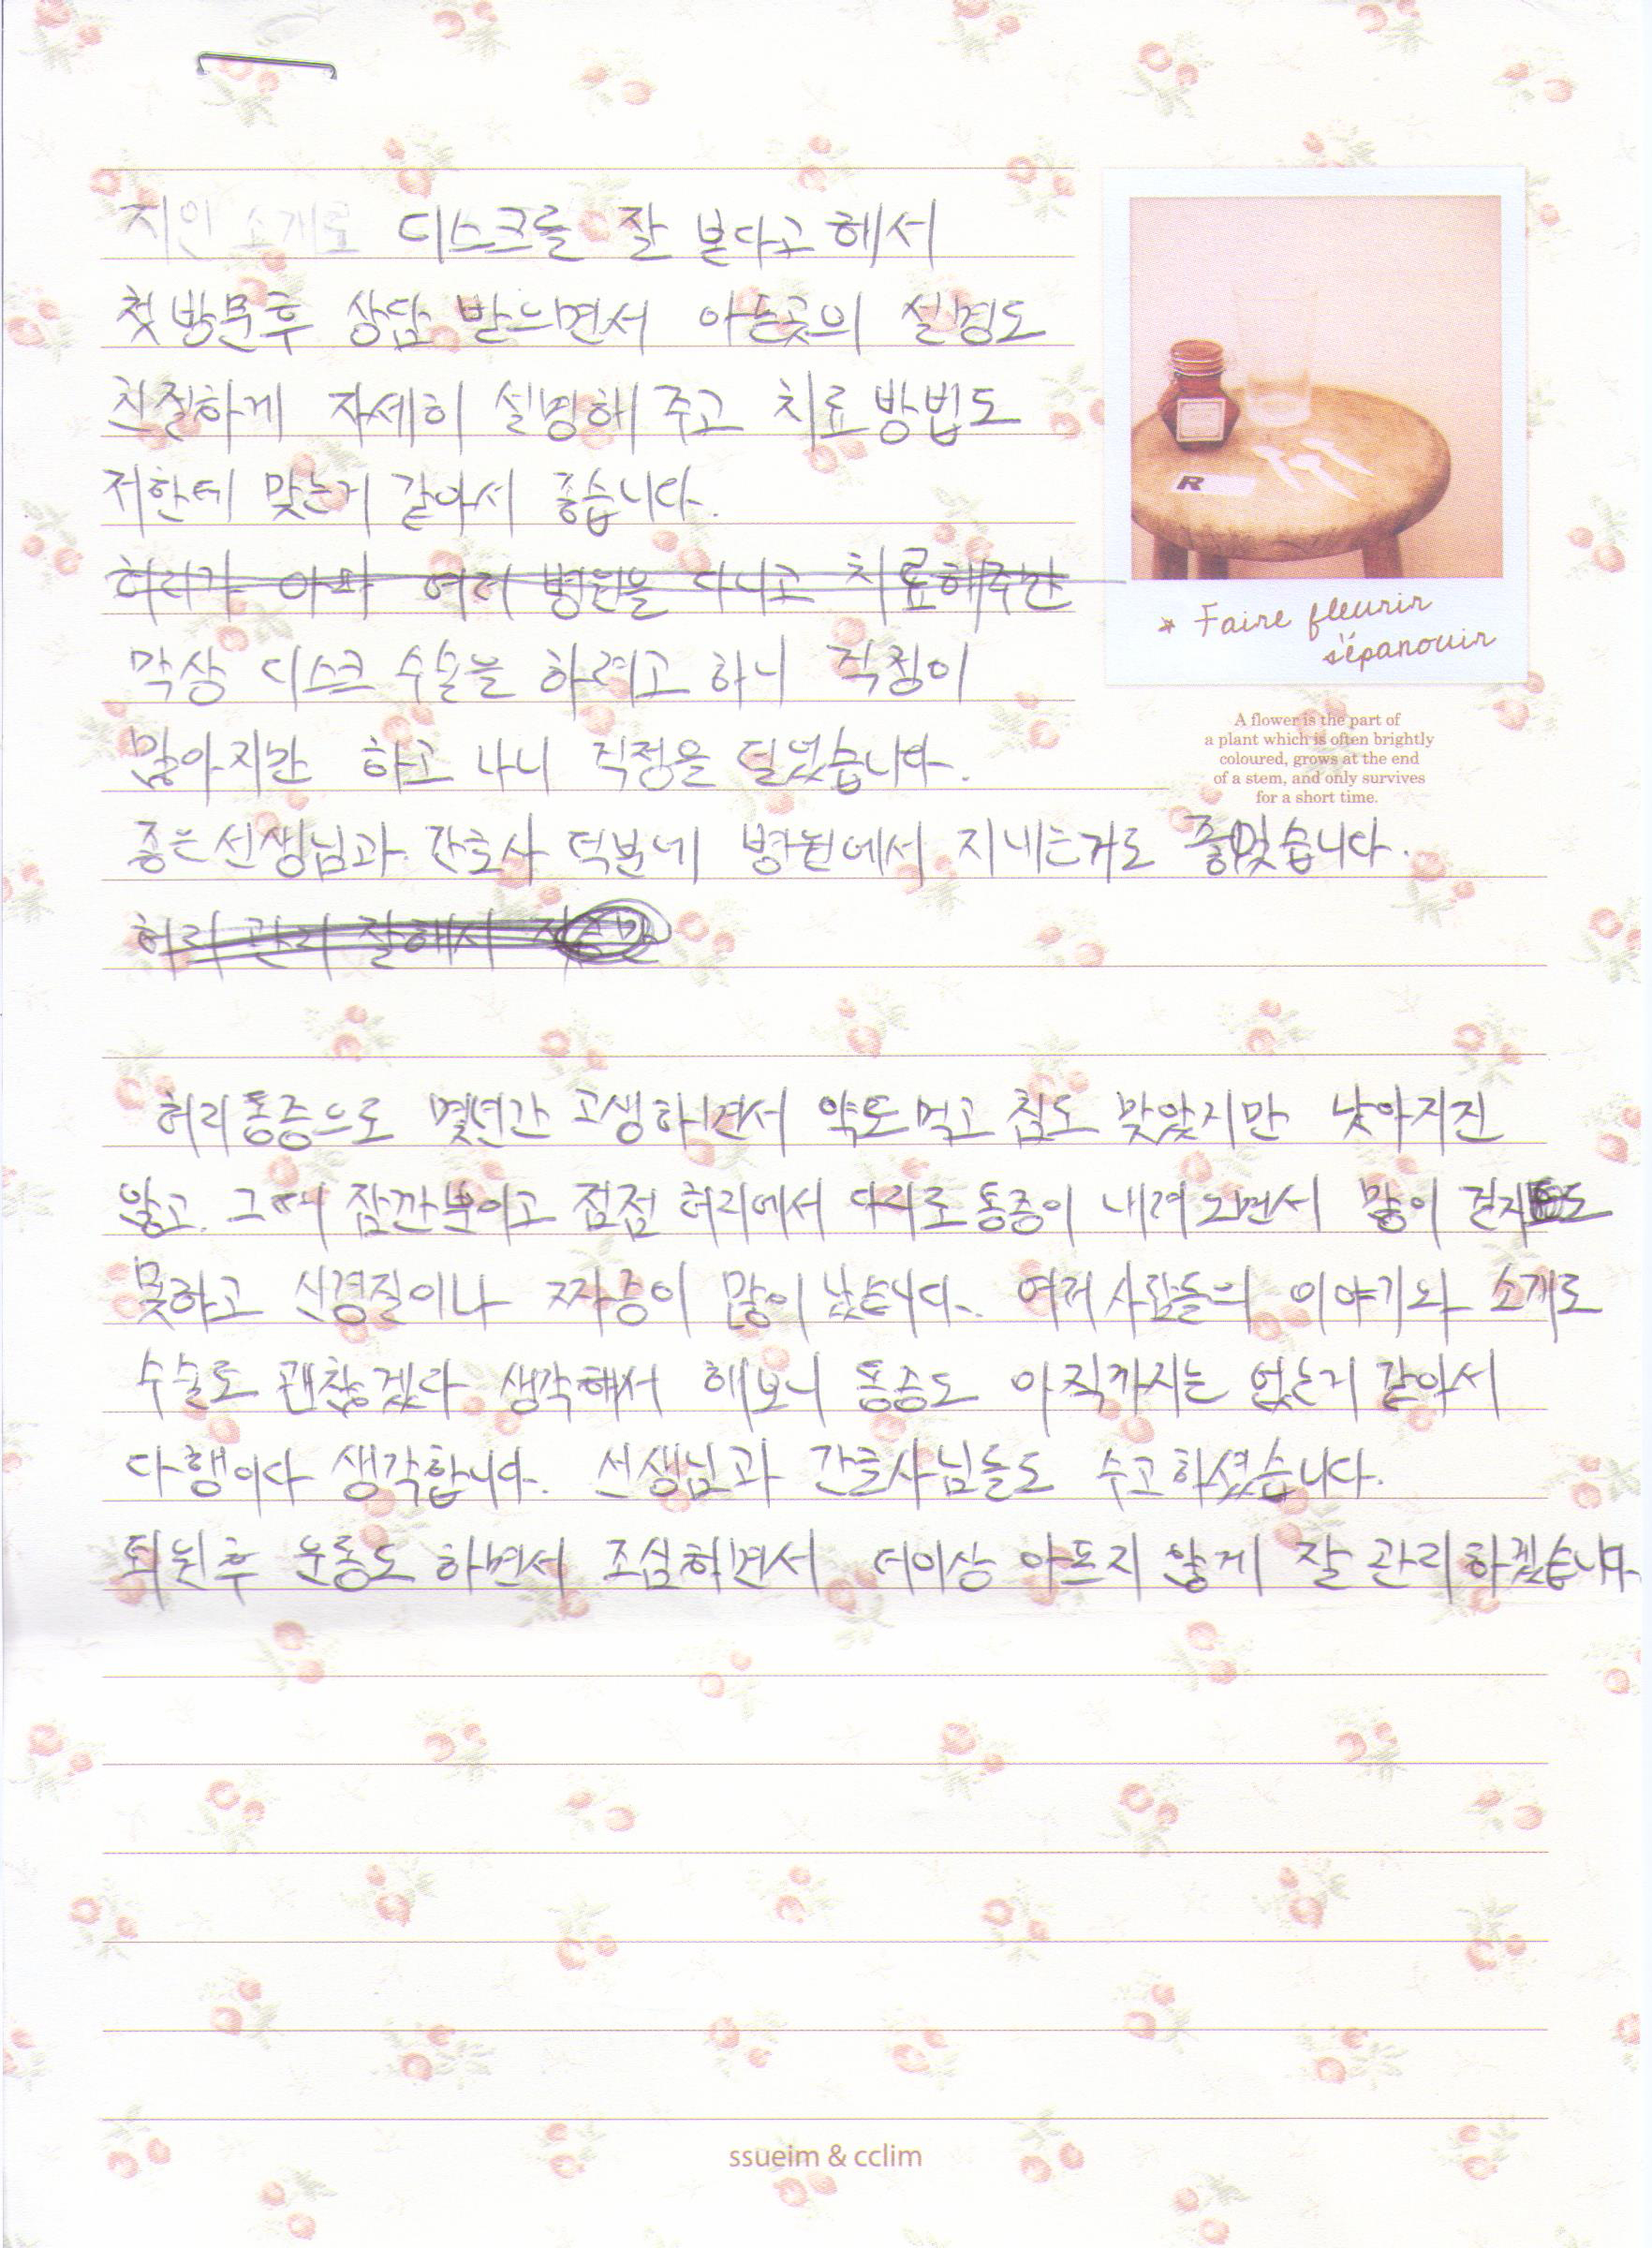 지인 소개로 디스크를 잘 본다고 해서
첫 방문후 상담 받으면서 아픈곳의 설명도
친절하게 자세히 설명해 주고 치료방법도
저한테 맞는거 같아서 좋습니다.
허리가 아파 여러 병원을 다니고 치료해주간
막상 디스크 수술을 하려고 하니 걱정이
많아지만 하고 나니 걱정을 덜었습니다.
좋은선생님과 간호사 덕분에 병원에서 지내는거도 좋았습니다.
허리 관리 잘해서
허리통증으로 몇년간 고생하면서 약도먹고 침도 맞았지만 낫아지진
않고. 그때 잠깐뿐이고 점점 허리에서 다리로 통증이 내려오면서 많이 걷지도
못하고 신경질이나 짜증이 많이 났습니다. 여러 사람들의 이야기와 소개로
수술도 괜찮겠다 생각해서 해보니 통증도 아직까지는 없는거 같아서
다행이다 생각합니다. 선생님과 간호사님들도 수고하셨습니다.
퇴원후 운동도 하면서 조심하면서 더이상 아프지 않게 잘 관리하겠습니다.
R
* Faire fleurir
s'épanouir
A flower is the part of
a plant which is often brightly
coloured, grows at the end
of a stem, and only survives
for a short time.
ssueim & cclim